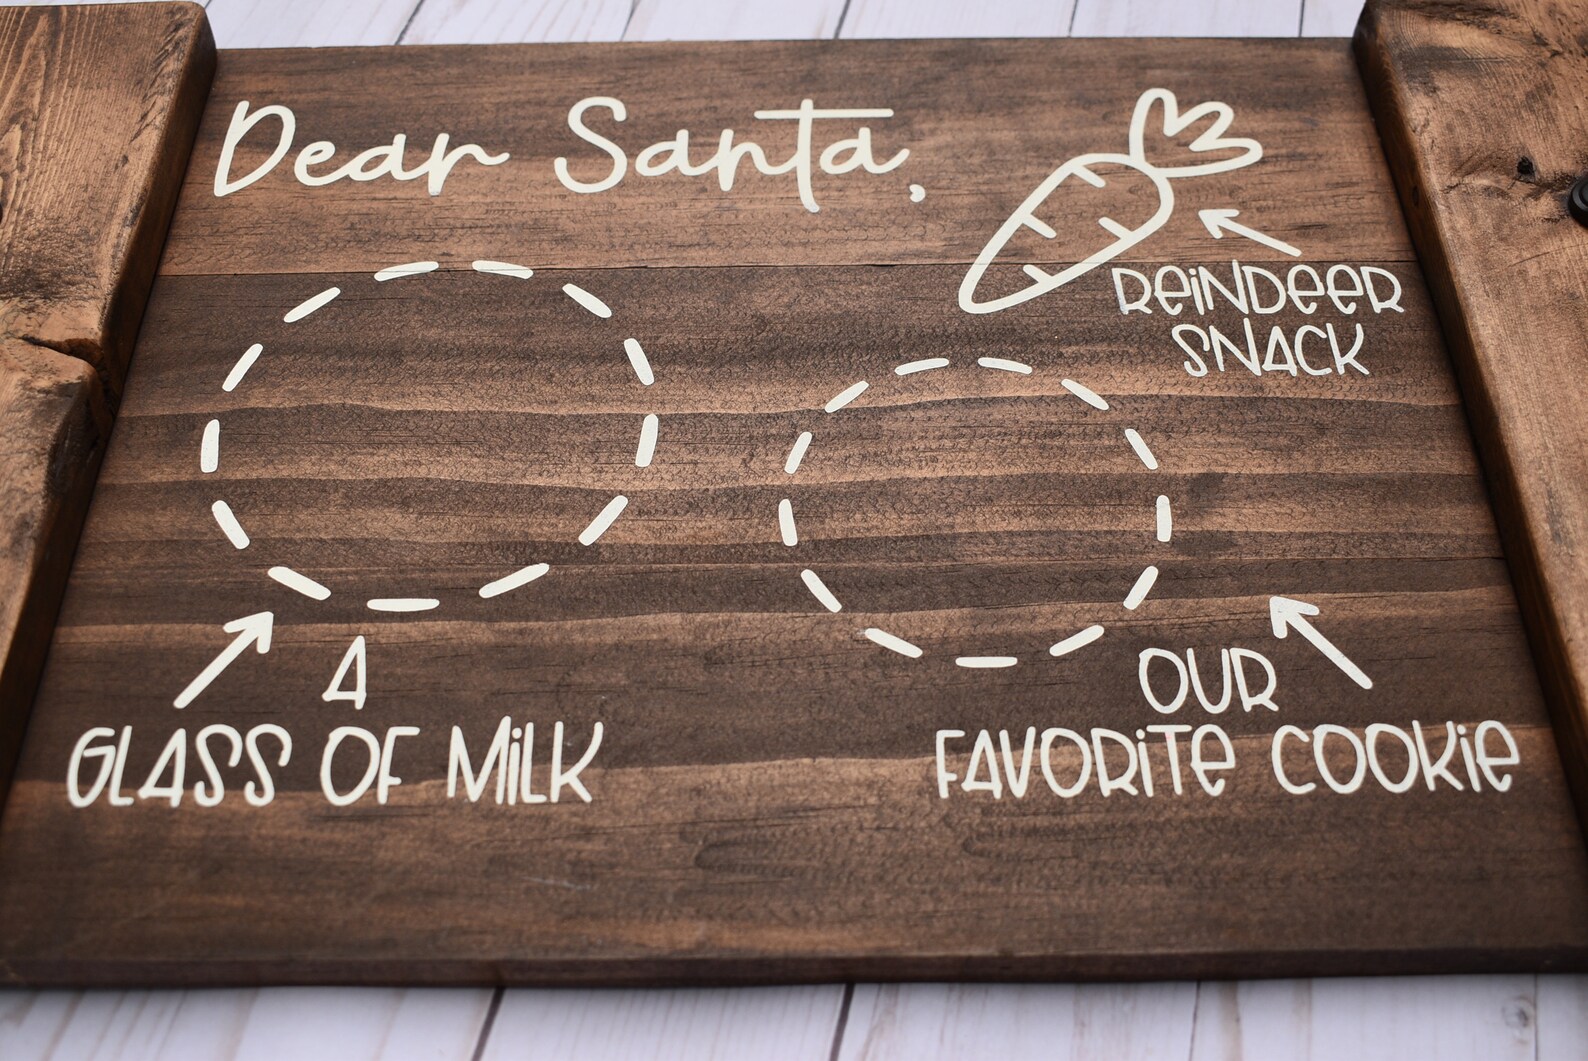 Dear Santa,
REINDEER
SNACK
A
GLASS OF MILK
OUR
FAVORITE COOKIE